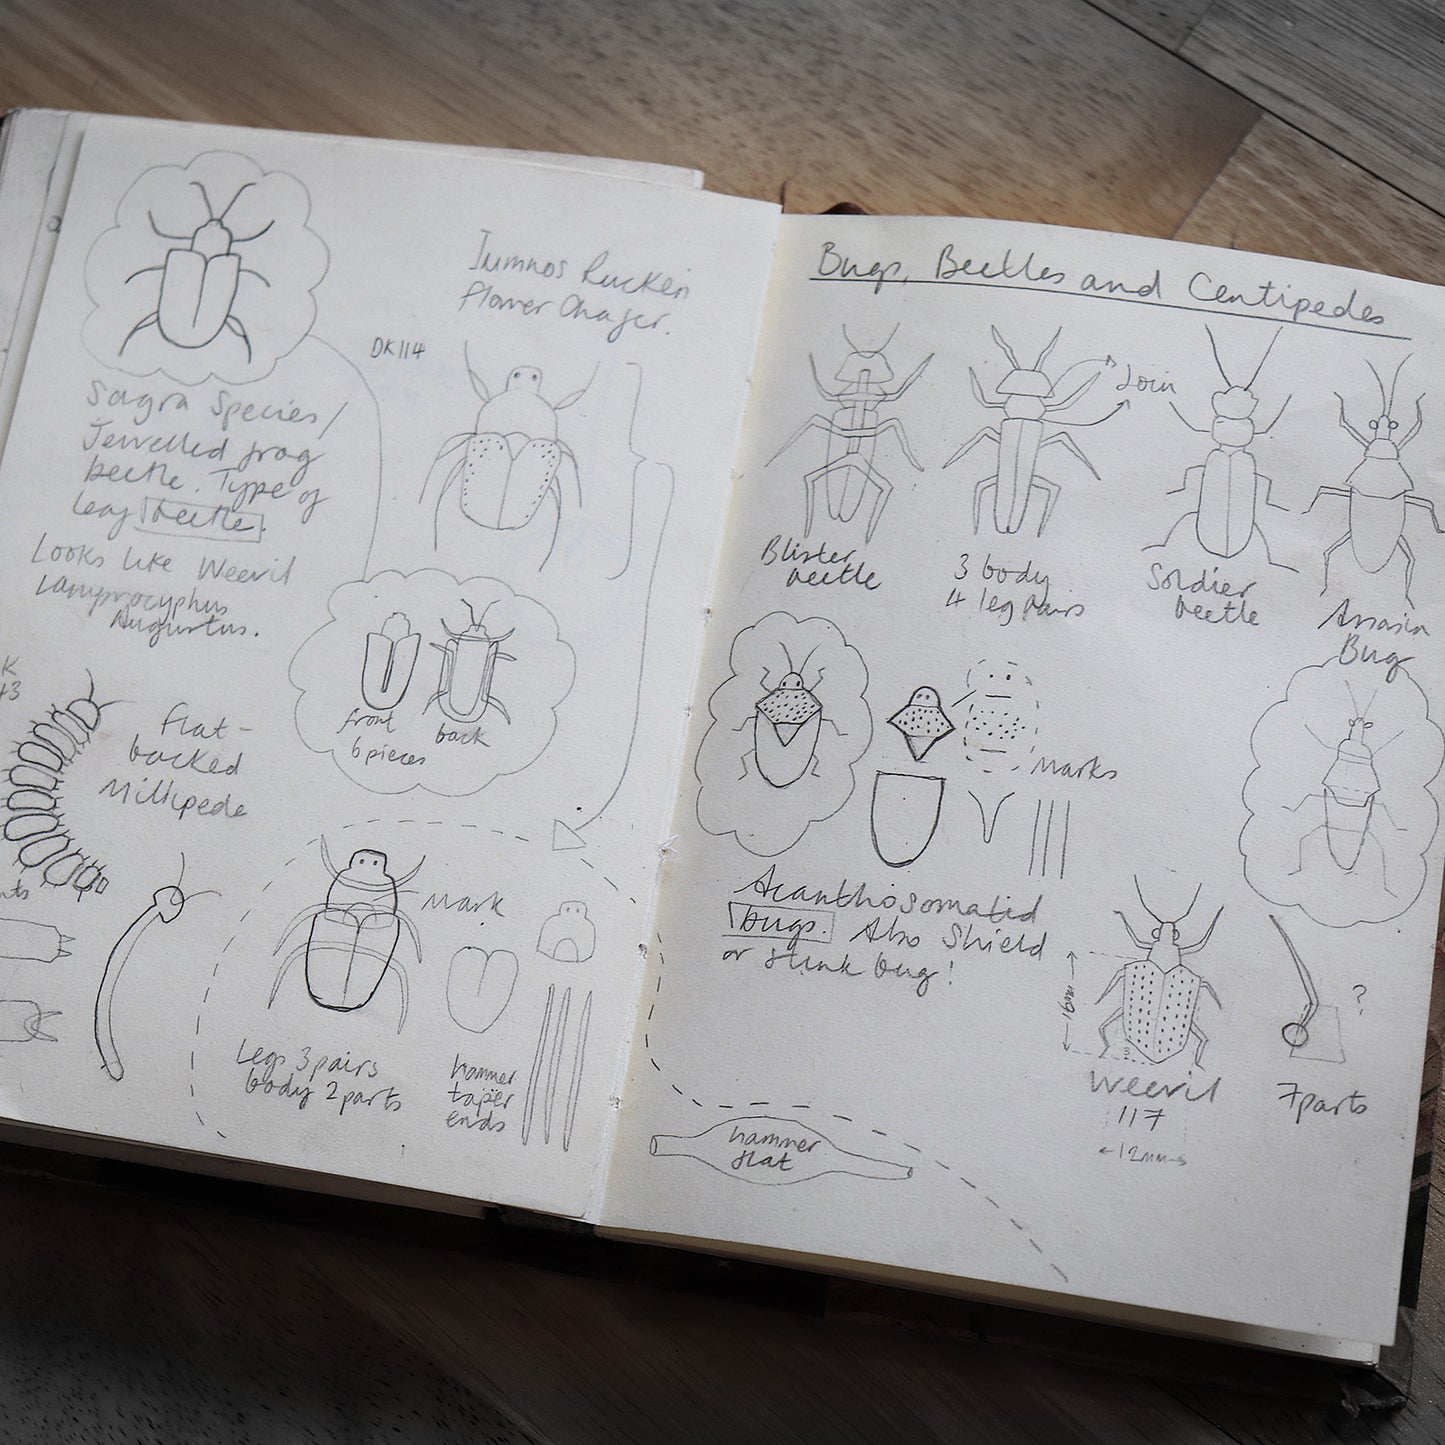 Jumnos Ruckeri
Flower Chafer.
DK114
Sagra Species/
Jewelled frog
beetle. Type of
leaf beetle.
Looks like Weevil
Lamprocyphus
Augustus.
front
back
6 pieces
K
Flat-
backed
Millipede
Mark
Legs 3 pairs
body 2 parts
hammer
taper
ends
Bugs, Beetles and Centipedes
Join
Blister
beetle
3 body
4 leg pairs
Soldier
beetle
Assasin
Bug
Marks
Acanthosomatid
bugs. Also Shield
or stink bug!
16mm
?
Weevil
117
12mm
7parts
hammer
flat